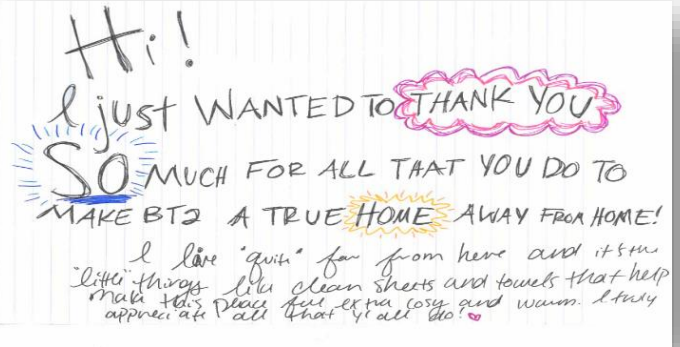 Hi!
I just WANTED TO THANK YOU
SO MUCH FOR ALL THAT YOU DO TO
MAKE BT2 A TRUE HOME AWAY FROM HOME!
I live "quite" far from here and it's the
"little" things like clean sheets and towels that help
make this place feel extra cosy and warm. I truly
appreciate all that y'all do!